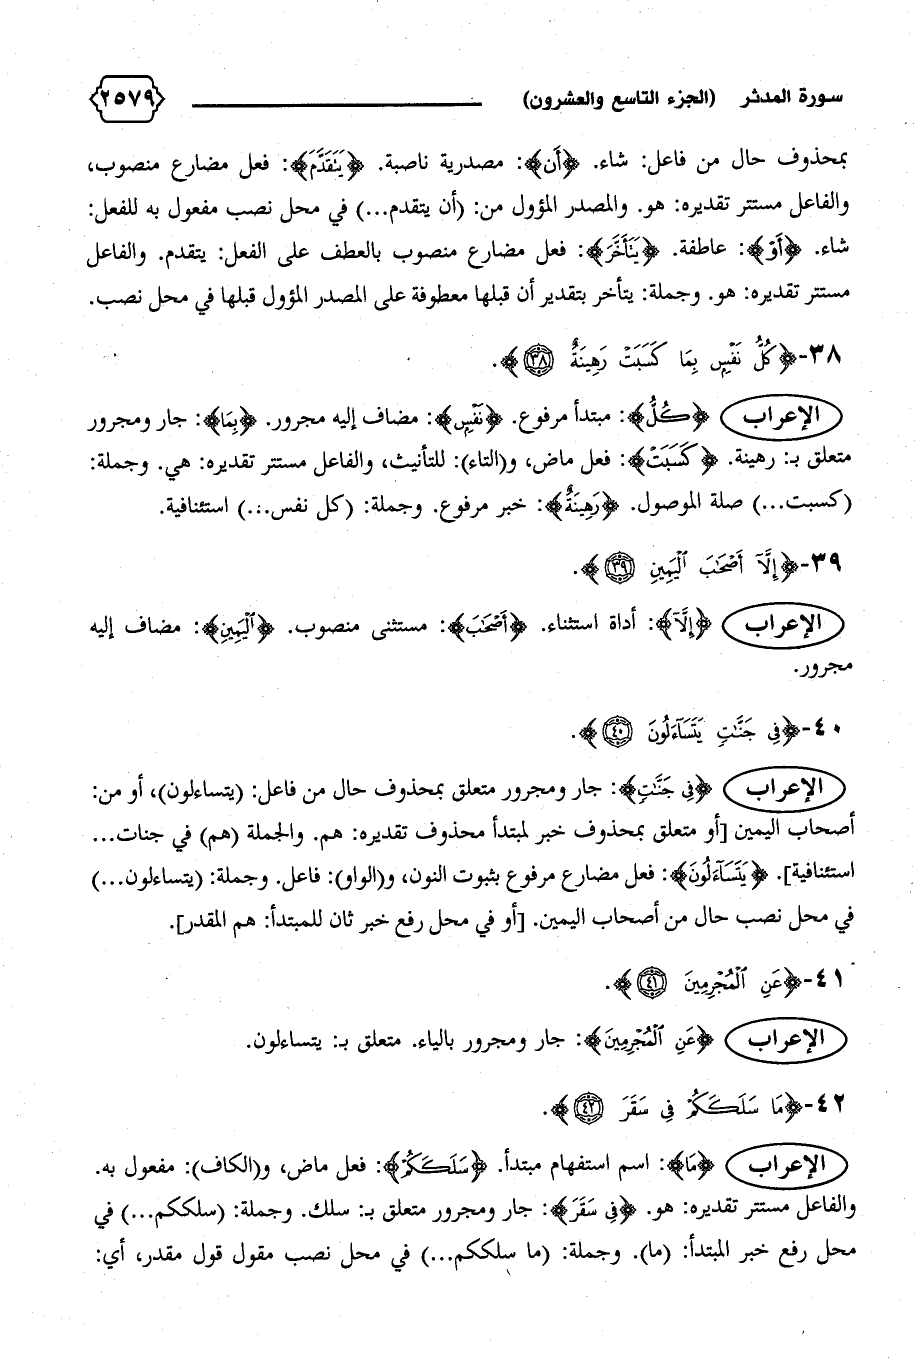 سورة المدثر (الجزء التاسع والعشرون) ٢٥٧٩
بمحذوف حال من فاعل: شاء. ﴿أَن﴾: مصدرية ناصبة. ﴿يَتَقَدَّمَ﴾: فعل مضارع منصوب،
والفاعل مستتر تقديره: هو. والمصدر المؤول من: (أن يتقدم...) في محل نصب مفعول به للفعل:
شاء. ﴿أَوْ﴾: عاطفة. ﴿يَتَأَخَّرَ﴾: فعل مضارع منصوب بالعطف على الفعل: يتقدم. والفاعل
مستتر تقديره: هو. وجملة: يتأخر بتقدير أن قبلها معطوفة على المصدر المؤول قبلها في محل نصب.
٣٨-﴿كُلُّ نَفْسٍ بِمَا كَسَبَتْ رَهِينَةٌ ٣٨﴾.
الإعراب ﴿كُلُّ﴾: مبتدأ مرفوع. ﴿نَفْسٍ﴾: مضاف إليه مجرور. ﴿بِمَا﴾: جار ومجرور
متعلق بـ: رهينة. ﴿كَسَبَتْ﴾: فعل ماض، و(التاء): للتأنيث، والفاعل مستتر تقديره: هي. وجملة:
(كسبت...) صلة الموصول. ﴿رَهِينَةٌ﴾: خبر مرفوع. وجملة: (كل نفس...) استئنافية.
٣٩-﴿إِلَّآ أَصْحَٰبَ ٱلْيَمِينِ ٣٩﴾.
الإعراب ﴿إِلَّآ﴾: أداة استثناء. ﴿أَصْحَٰبَ﴾: مستثنى منصوب. ﴿ٱلْيَمِينِ﴾: مضاف إليه
مجرور.
٤٠-﴿فِى جَنَّٰتٍ يَتَسَآءَلُونَ ٤٠﴾.
الإعراب ﴿فِى جَنَّٰتٍ﴾: جار ومجرور متعلق بمحذوف حال من فاعل: (يتساءلون)، أو من:
أصحاب اليمين [أو متعلق بمحذوف خبر لمبتدأ محذوف تقديره: هم. والجملة (هم) في جنات...
استئنافية]. ﴿يَتَسَآءَلُونَ﴾: فعل مضارع مرفوع بثبوت النون، و(الواو): فاعل. وجملة: (يتساءلون...)
في محل نصب حال من أصحاب اليمين. [أو في محل رفع خبر ثان للمبتدأ: هم المقدر].
٤١-﴿عَنِ ٱلْمُجْرِمِينَ ٤١﴾.
الإعراب ﴿عَنِ ٱلْمُجْرِمِينَ﴾: جار ومجرور بالياء. متعلق بـ: يتساءلون.
٤٢-﴿مَا سَلَكَكُمْ فِى سَقَرَ ٤٢﴾.
الإعراب ﴿مَا﴾: اسم استفهام مبتدأ. ﴿سَلَكَكُمْ﴾: فعل ماض، و(الكاف): مفعول به.
والفاعل مستتر تقديره: هو. ﴿فِى سَقَرَ﴾: جار ومجرور متعلق بـ: سلك. وجملة: (سلككم...) في
محل رفع خبر المبتدأ: (ما). وجملة: (ما سلككم...) في محل نصب مقول قول مقدر، أي: